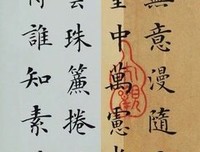 無意漫隨
中萬憲
雲珠簾捲
誰知素